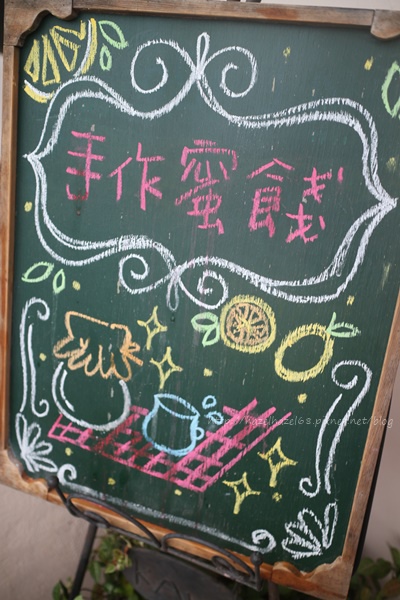 手作蜜餞
http://hazelhazel68.pixnet.net/blog